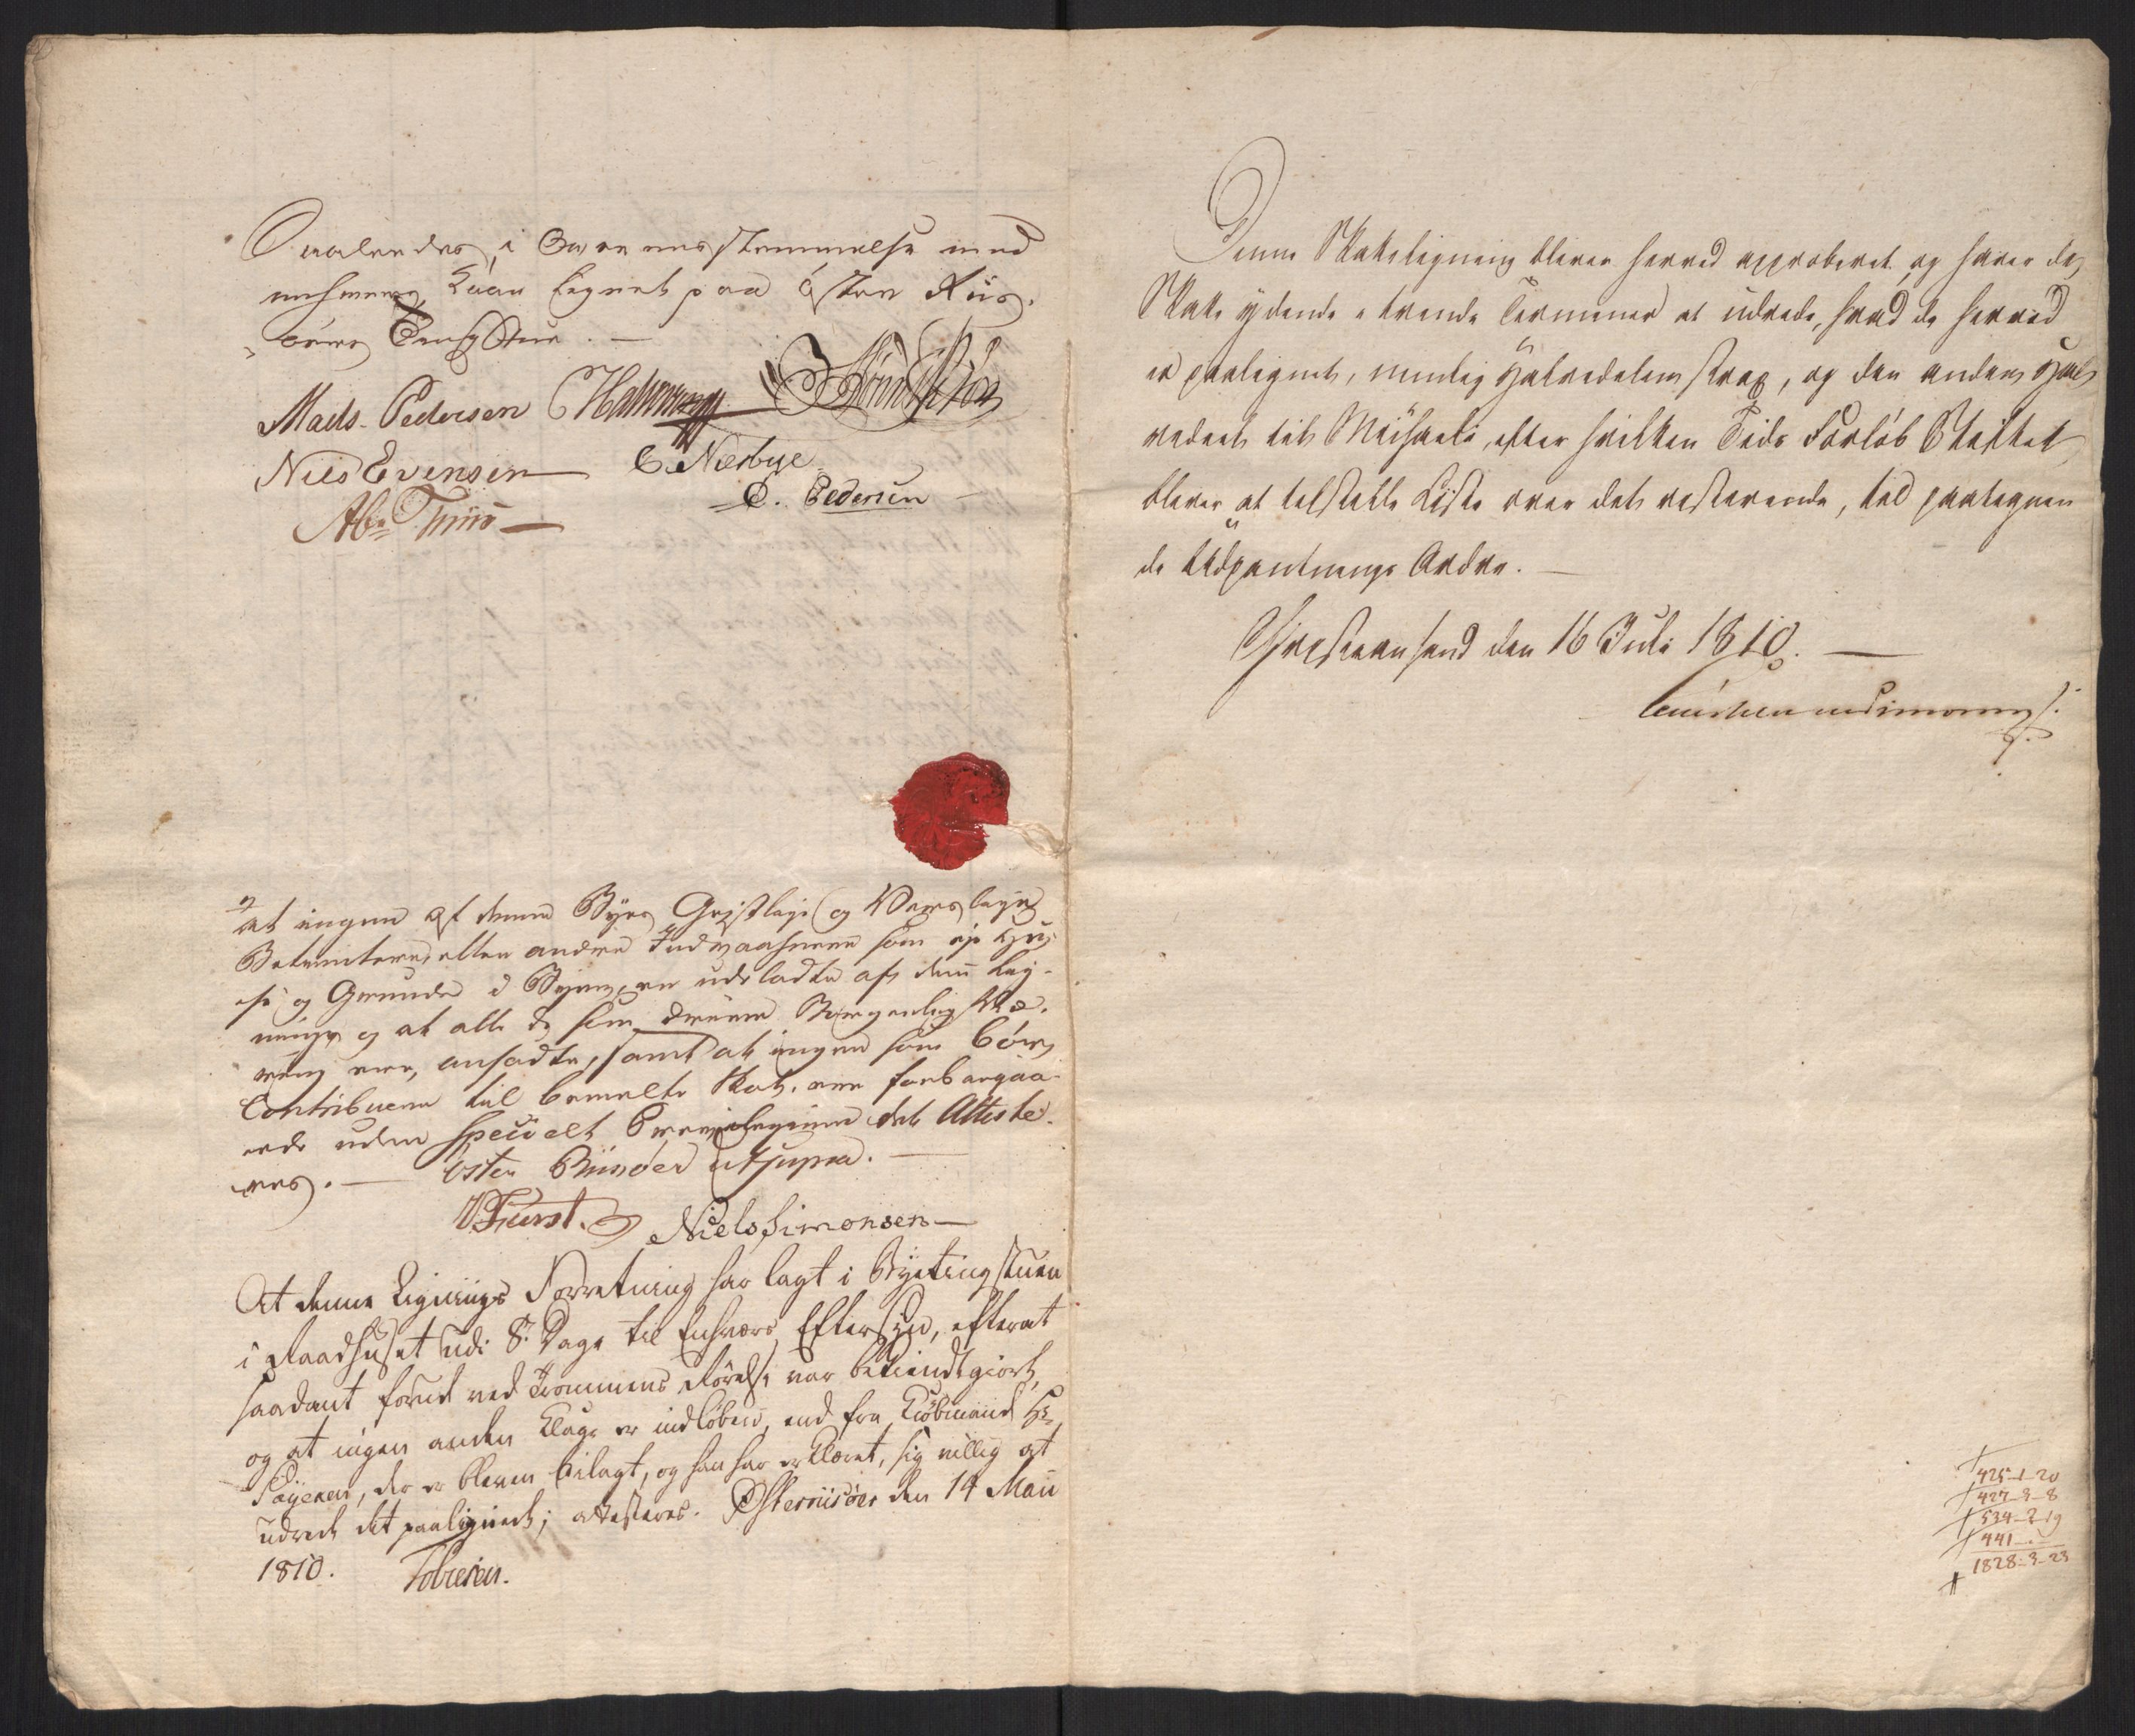 Saaledes, i Overeensstemmelse med
lignet paa Øster Riis-
øers
Mads Pedersen
Niels Evensen
C. Nierbye
P. Pedersen
At ingen af denne Byes Geistlige og Verdslige
Betientere, eller andre Indvaanere som eje Huu-
se og Grunde i Byen, ere udeladte af denne Lig-
ning, og at alle de som drive Borgerlig Næ-
ring ere ansadte, samt at ingen som bør
Contribuere til bemelte Skat, ere forbigaa-
ede uden specielt Privilegium det Atteste-
res. — Øster Riisøer ut supra. —
Fürst. Niels Simonsen
At denne Lignings Forretning har lagt i Byetingstuen
i Raadhuset udi 8te Dage til Enhvers Eftersyn, efterat
saadant forud ved Trommens Rørelse var bekiendtgiort,
og at ingen anden Klage er indløben, end fra Kiøbmand Hr.
der er bleven bilagt, og han har erklæret, sig villig at
udrede det paalignede; attesteres. Østerriisøer den 14 Maii
1810. Tobiesen.
Denne Skatteligning bliver herved approberet og haver de
Skatte ydende i tvende Terminer at udrede, hvad de herved
er paalignet, nemlig Halvedelen strax, og den anden Hal-
vedeel til Michaeli, efter hvilken Tids Forløb Stiftet
bliver at tilstille Liste over det resterende, til paategnen-
de Udpantnings Ordre. —
Christiansand den 16 Juli 1810. —
425-1-20
427-3-8
534-2-19
441-
1828-3-23